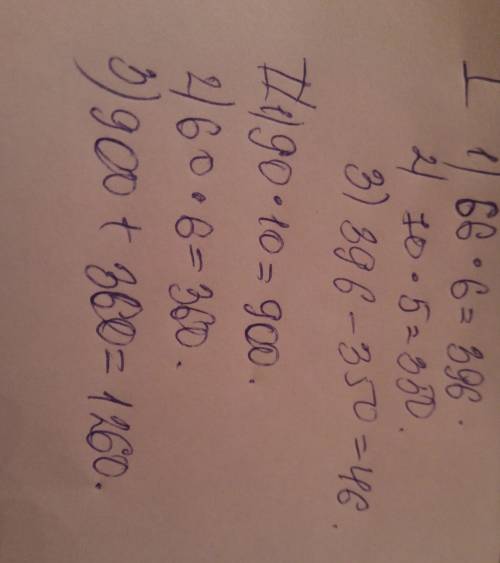 I
1) 66 · 6 = 396.
2) 70 · 5 = 350.
3) 396 - 350 = 46.
II 1) 90 · 10 = 900.
2) 60 · 6 = 360.
3) 900 + 360 = 1260.